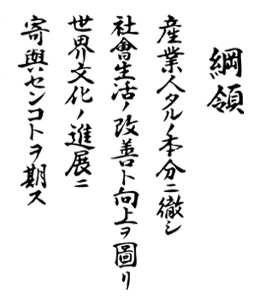 綱領
産業人タルノ本分ニ徹シ
社會生活ノ改善ト向上ヲ圖リ
世界文化ノ進展ニ
寄與センコトヲ期ス